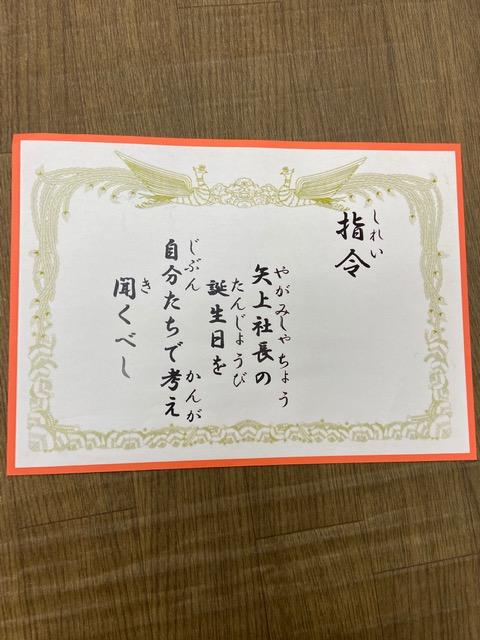 指令
しれい
矢上社長の
やがみしゃちょう
誕生日を
たんじょうび
自分たちで考え
じぶん かんが
聞くべし
き